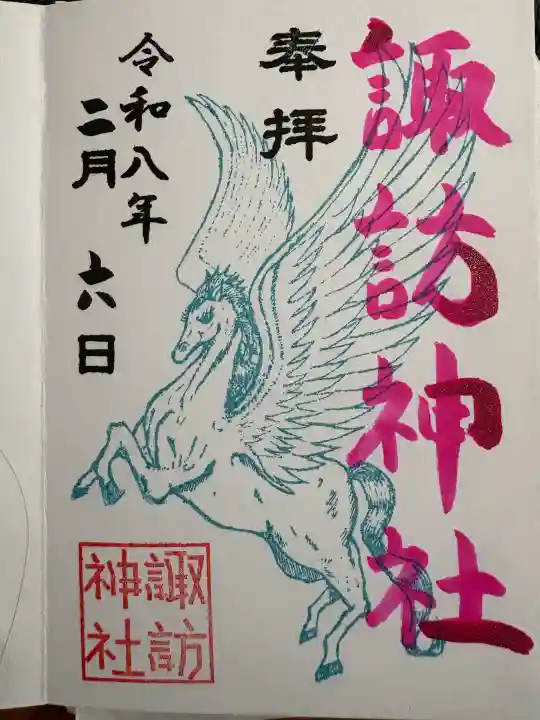 諏訪神社
奉拝
令和八年
二月六日
諏訪
神社